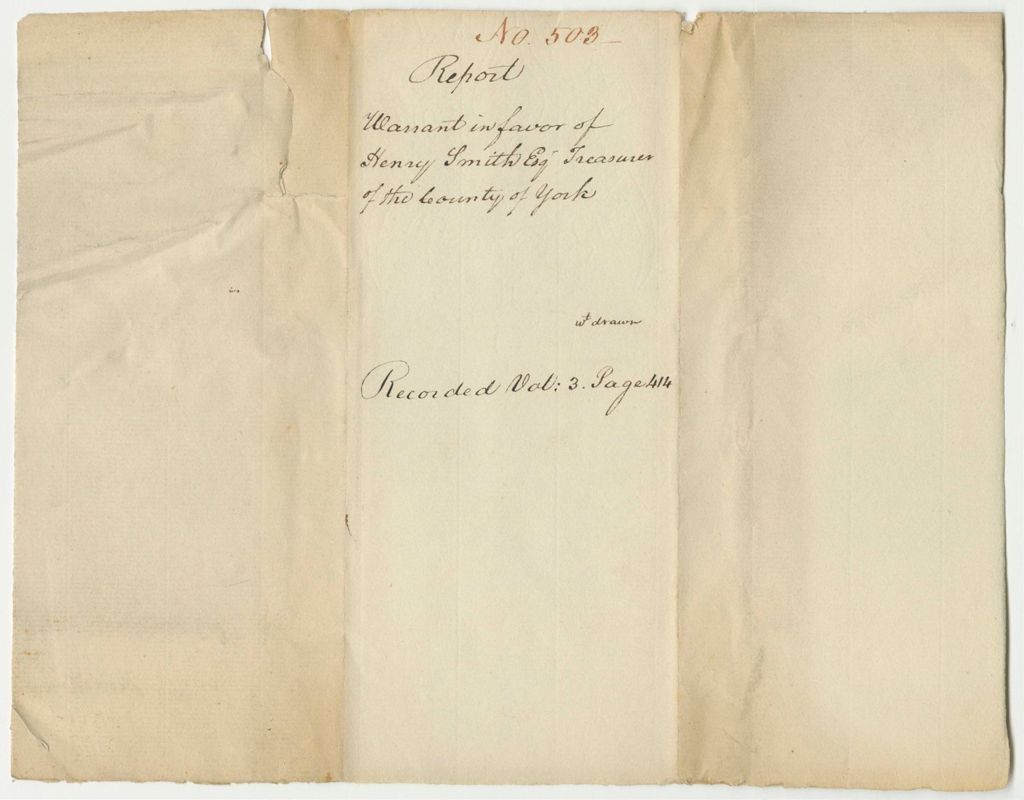 No. 503
Report
Warrant in favor of
Henry Smith Esqr Treasurer
of the County of York
wt drawn
Recorded Vol: 3. Page 414